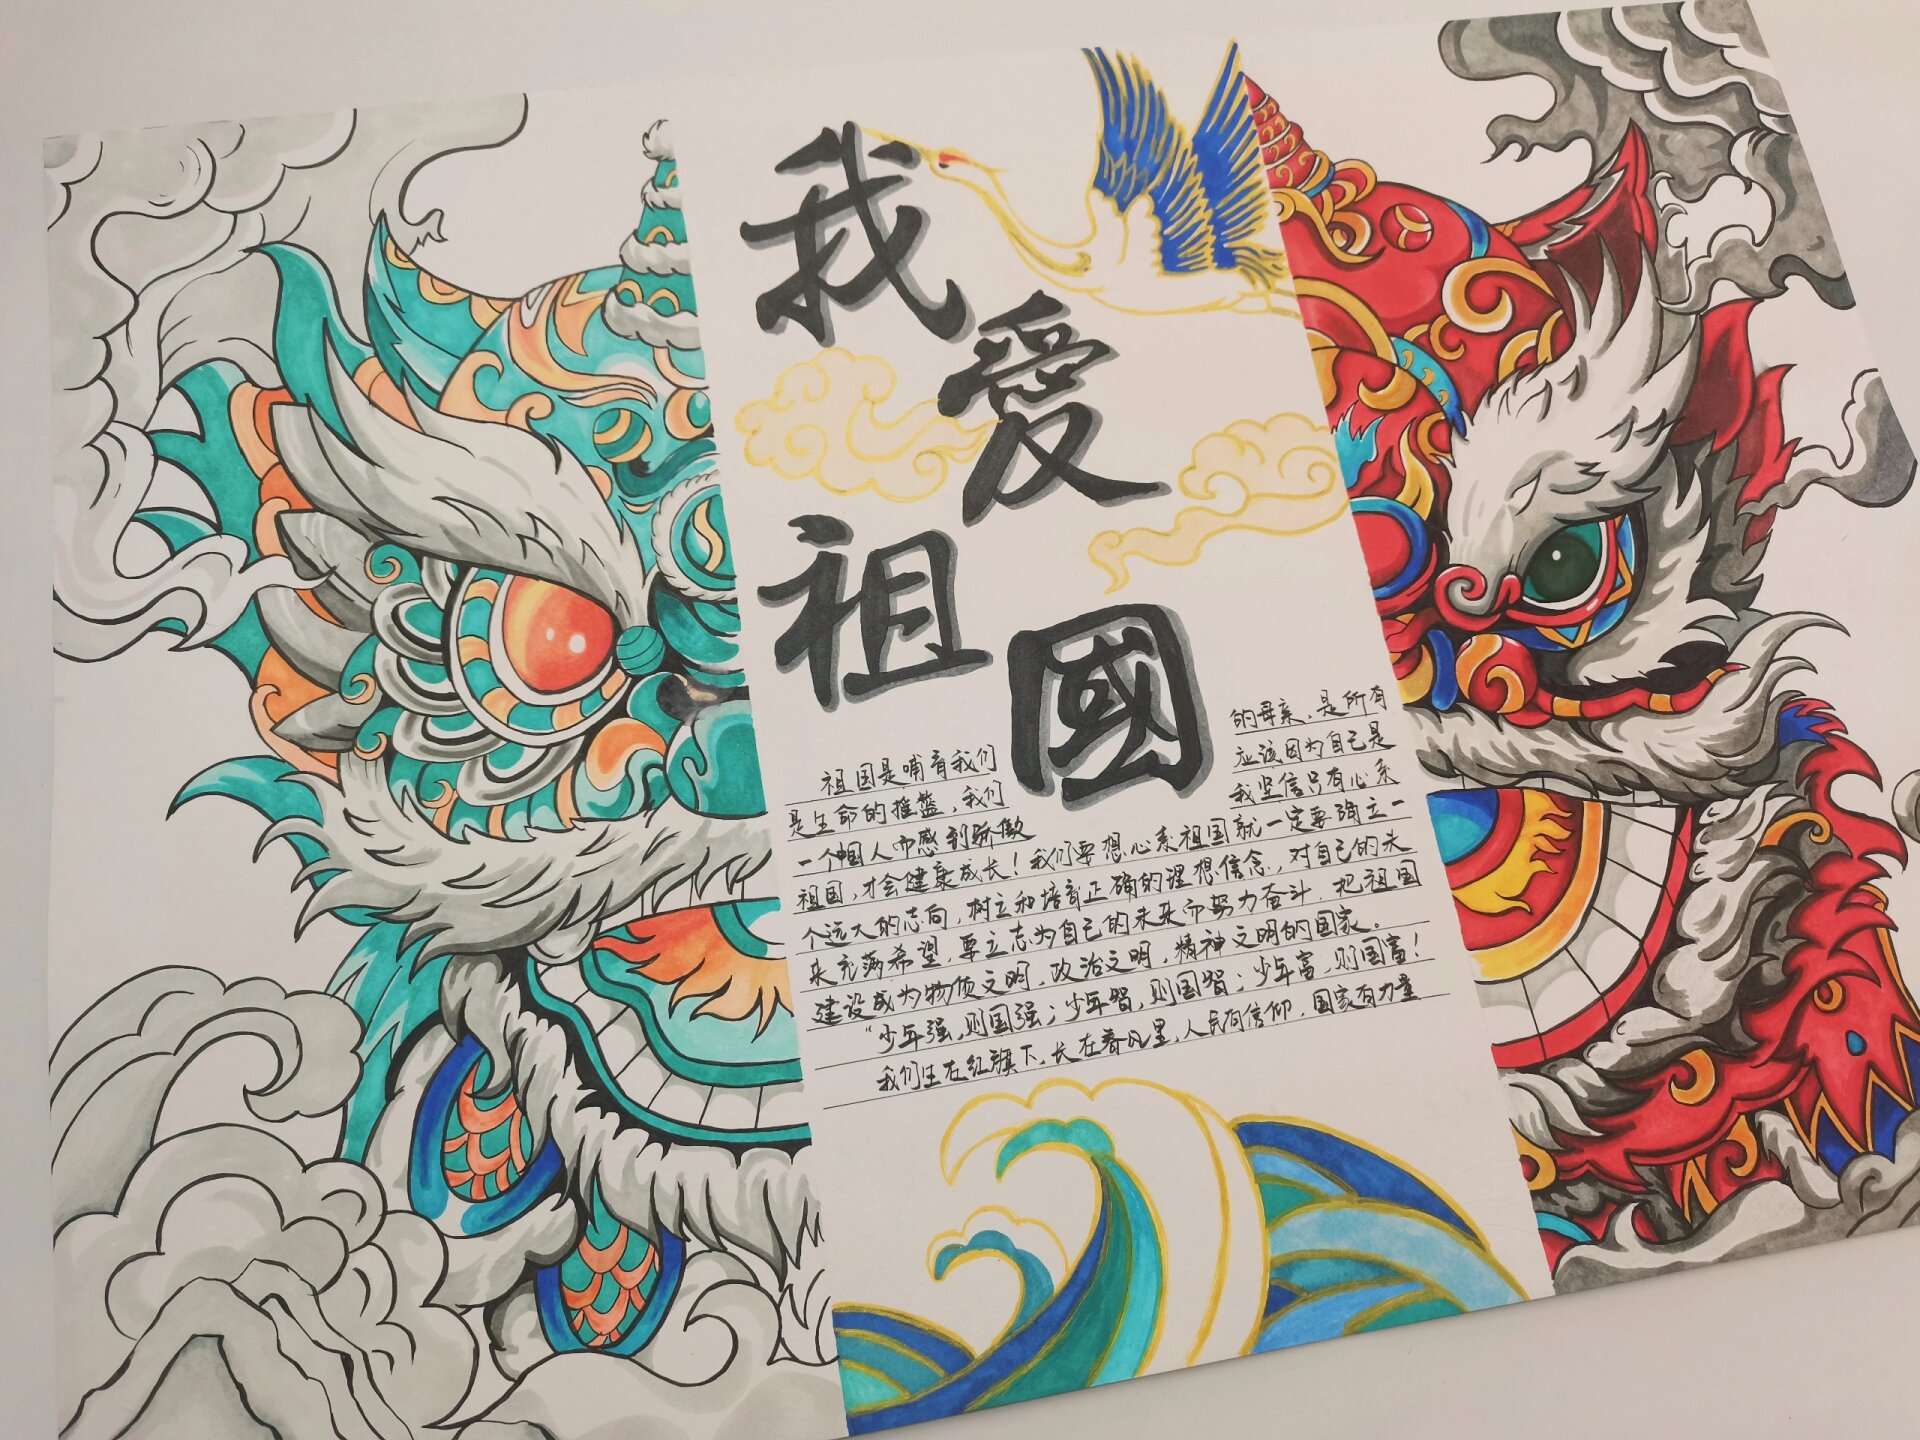 我
爱
祖
國
祖国是哺育我们 的母亲，是所有
是生命的摇篮，我们 应该因为自己是
一个中国人而感到骄傲 我坚信只有心系
祖国，才会健康成长！我们要想心系祖国就一定要确立一
个远大的志向，树立和培育正确的理想信念，对自己的未
来充满希望，要立志为自己的未来而努力奋斗，把祖国
建设成为物质文明，政治文明，精神文明的国家。
“少年强，则国强；少年智，则国智；少年富，则国富！
我们生在红旗下，长在春风里，人民有信仰，国家有力量